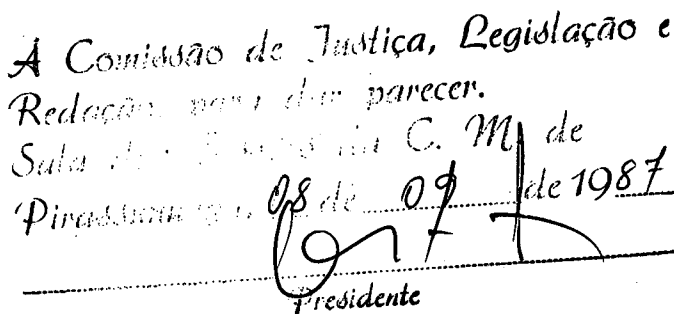 À Comissão de Justiça, Legislação e
Redação, para dar parecer.
Sala das Sessões da C. M. de
Pirassununga, 08 de 09 de 1987
Presidente